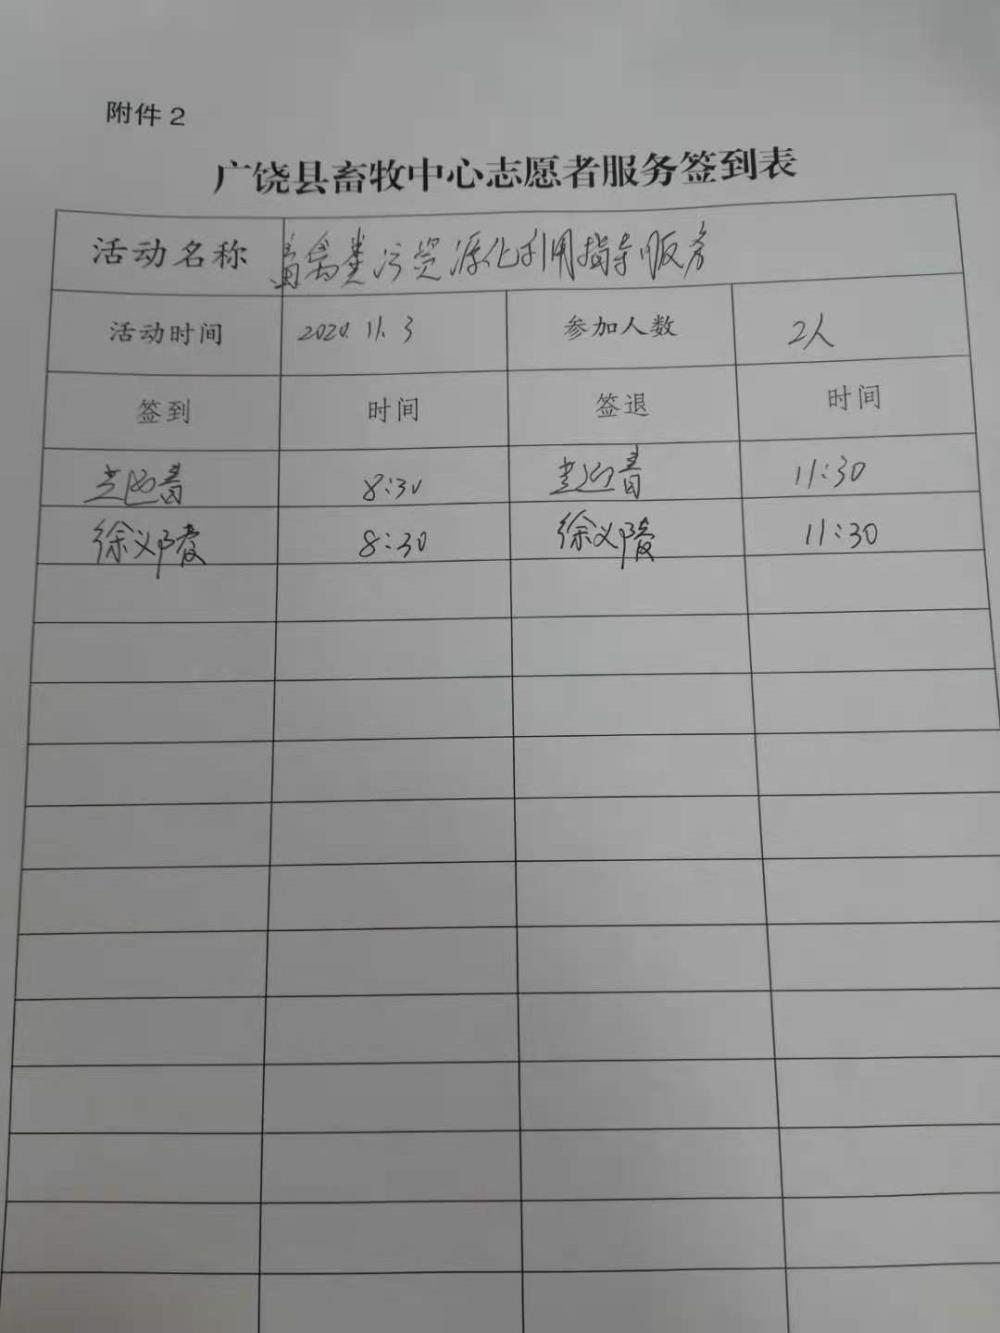 附件2
广饶县畜牧中心志愿者服务签到表
活动名称 畜禽粪污资源化利用指导服务
活动时间 2020.11.3 参加人数 2人
签到 时间 签退 时间
8:30 11:30
徐义 8:30 徐义 11:30